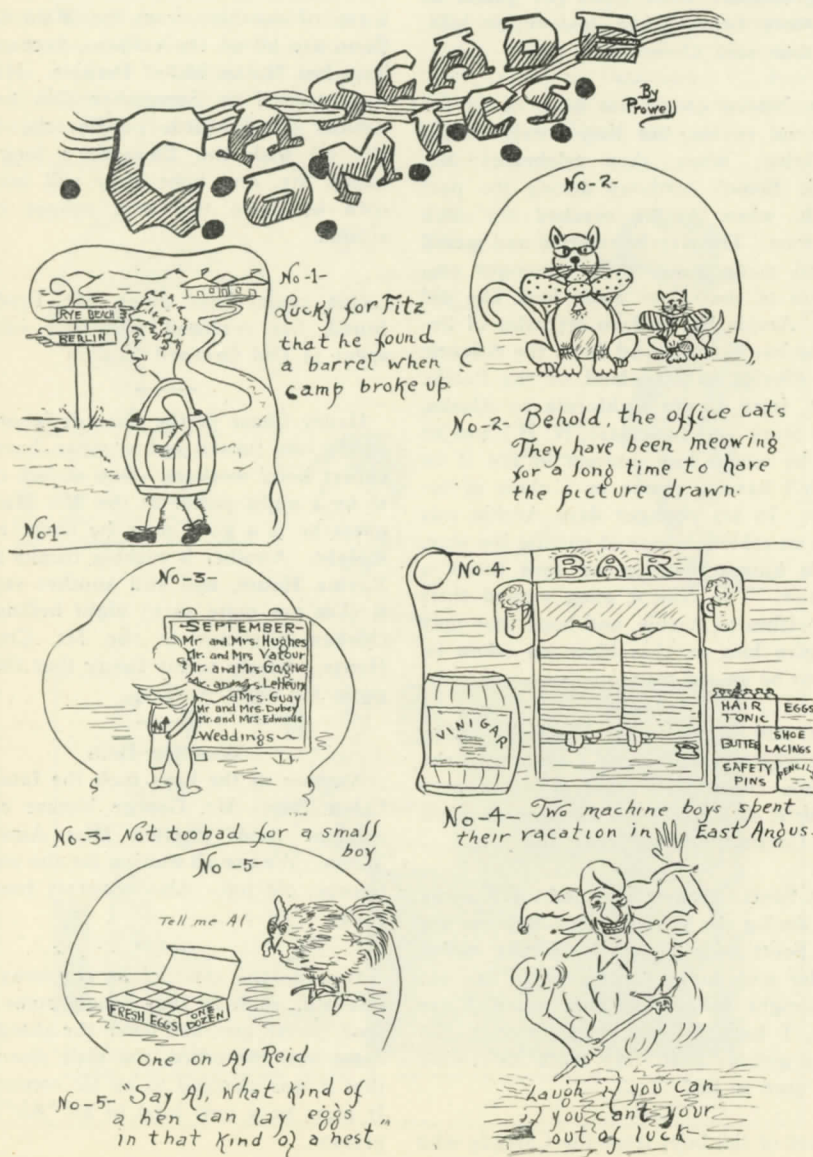 CASCADE
COMICS
By
Prowell
No-1-
Lucky for Fitz
that he found
a barrel when
camp broke up
RYE BEACH
BERLIN
No-1-
No-2-
No-2- Behold, the office cats
They have been meowing
for a long time to have
the picture drawn.
No-3-
-SEPTEMBER-
Mr. and Mrs. Hughes
Mr. and Mrs Vatour
Mr. and Mrs Gagne
and Mrs. Guay
Mr and Mrs. Dubey
Mr. and Mrs Edwards
Weddings
No-3- Not too bad for a small
boy
No-4-
BAR
VINIGAR
HAIR TONIC EGGS
BUTTER SHOE LACINGS
SAFETY PINS PENCIL
No-4- Two machine boys spent
their vacation in East Angus.
No -5-
Tell me Al
FRESH EGGS ONE DOZEN
One on Al Reid
No-5- "Say Al, what kind of
a hen can lay eggs
in that kind of a nest"
Laugh if you can,
if you cant your
out of luck-